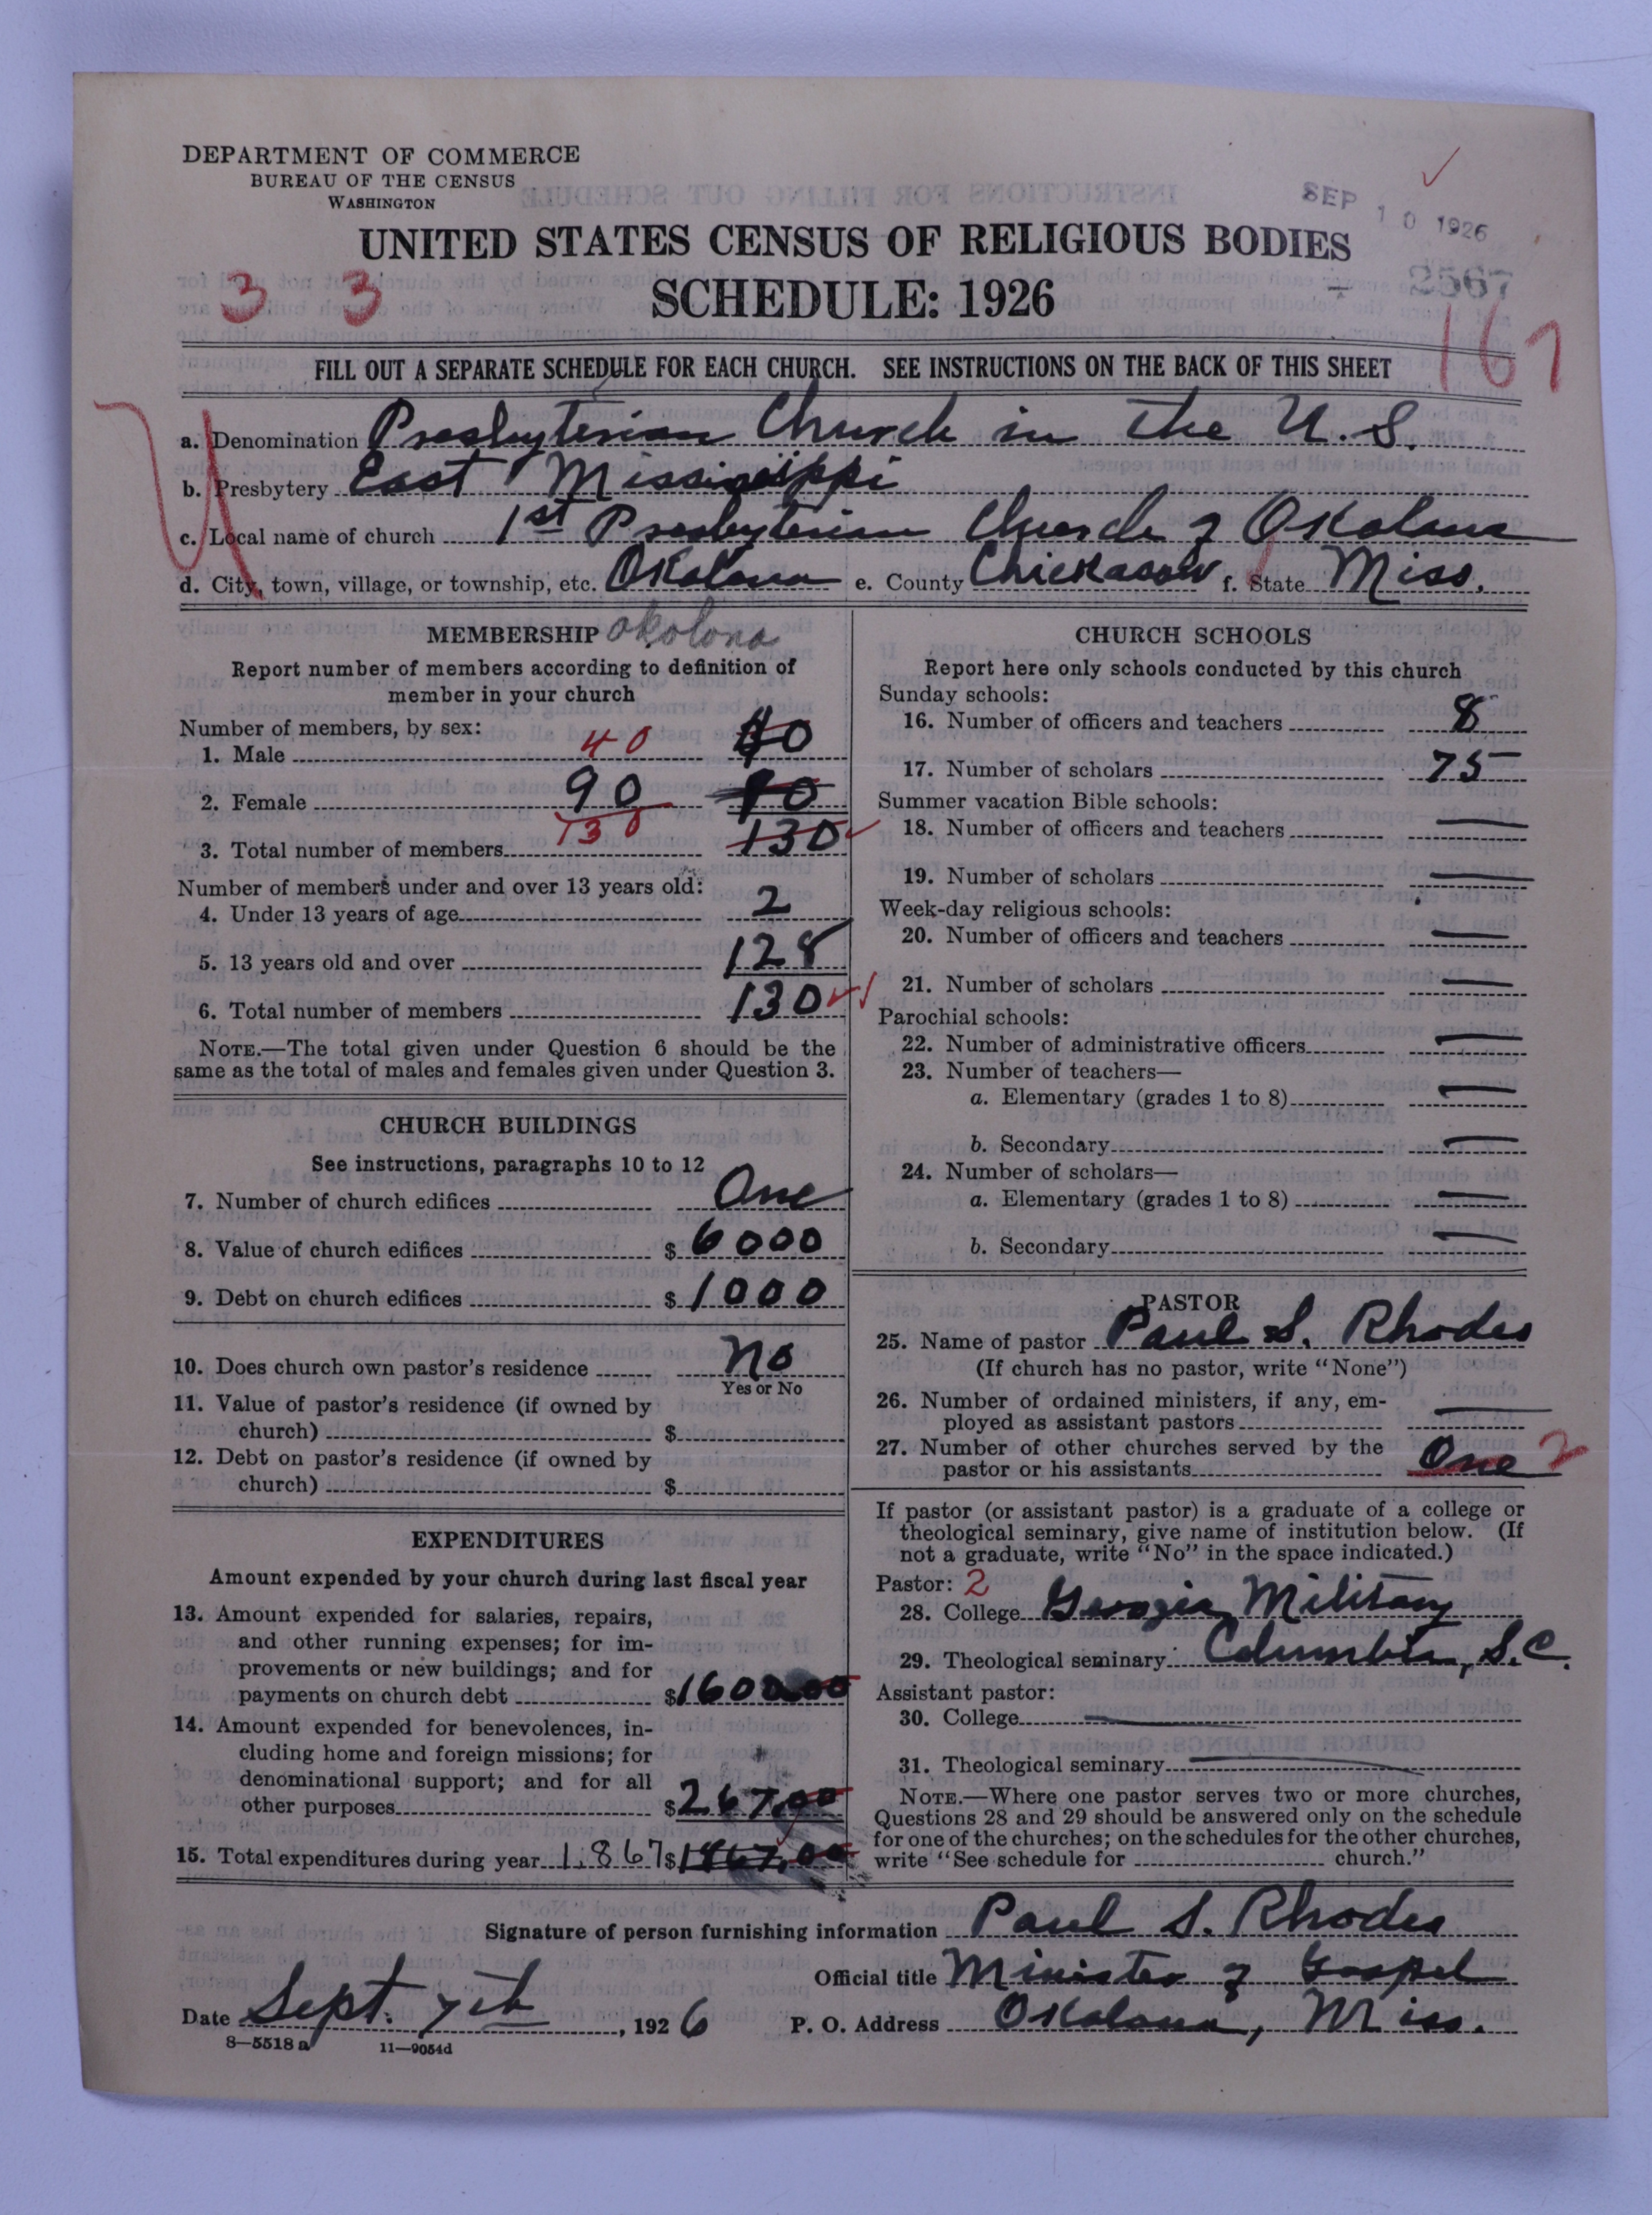 DEPARTMENT OF COMMERCE
BUREAU OF THE CENSUS
WASHINGTON
SEP 10 1926
UNITED STATES CENSUS OF RELIGIOUS BODIES
2567
3 3
SCHEDULE: 1926
167
FILL OUT A SEPARATE SCHEDULE FOR EACH CHURCH. SEE INSTRUCTIONS ON THE BACK OF THIS SHEET
a. Denomination Presbyterian Church in the U.S.
b. Presbytery East Mississippi
c. Local name of church 1st Presbyterian Church of Okolona
d. City, town, village, or township, etc. Okolona e. County Chickasaw f. State Miss.
MEMBERSHIP Okolona
Report number of members according to definition of
member in your church
Number of members, by sex:
1. Male 40 40
2. Female 90 90
3. Total number of members 130 130
Number of members under and over 13 years old:
4. Under 13 years of age 2
5. 13 years old and over 128
6. Total number of members 130
NOTE.—The total given under Question 6 should be the
same as the total of males and females given under Question 3.
CHURCH BUILDINGS
See instructions, paragraphs 10 to 12
7. Number of church edifices One
8. Value of church edifices $ 6000
9. Debt on church edifices $ 1000
10. Does church own pastor's residence No
Yes or No
11. Value of pastor's residence (if owned by
church) $
12. Debt on pastor's residence (if owned by
church) $
EXPENDITURES
Amount expended by your church during last fiscal year
13. Amount expended for salaries, repairs,
and other running expenses; for im-
provements or new buildings; and for
payments on church debt $1600.00
14. Amount expended for benevolences, in-
cluding home and foreign missions; for
denominational support; and for all
other purposes $267.00
15. Total expenditures during year 1,867 $1867.00
CHURCH SCHOOLS
Report here only schools conducted by this church
Sunday schools:
16. Number of officers and teachers 8
17. Number of scholars 75
Summer vacation Bible schools:
18. Number of officers and teachers —
19. Number of scholars —
Week-day religious schools:
20. Number of officers and teachers —
21. Number of scholars —
Parochial schools:
22. Number of administrative officers —
23. Number of teachers—
a. Elementary (grades 1 to 8) —
b. Secondary —
24. Number of scholars—
a. Elementary (grades 1 to 8) —
b. Secondary —
PASTOR
25. Name of pastor Paul S. Rhodes
(If church has no pastor, write "None")
26. Number of ordained ministers, if any, em-
ployed as assistant pastors —
27. Number of other churches served by the
pastor or his assistants One 2
If pastor (or assistant pastor) is a graduate of a college or
theological seminary, give name of institution below. (If
not a graduate, write "No" in the space indicated.)
Pastor: 2
28. College Georgia Military
29. Theological seminary Columbia, S.C.
Assistant pastor:
30. College —
31. Theological seminary —
NOTE.—Where one pastor serves two or more churches,
Questions 28 and 29 should be answered only on the schedule
for one of the churches; on the schedules for the other churches,
write "See schedule for church."
Signature of person furnishing information Paul S. Rhodes
Official title Minister of Gospel
Date Sept. 7th, 1926 P. O. Address Okolona, Miss.
8—5518 a 11—9054d